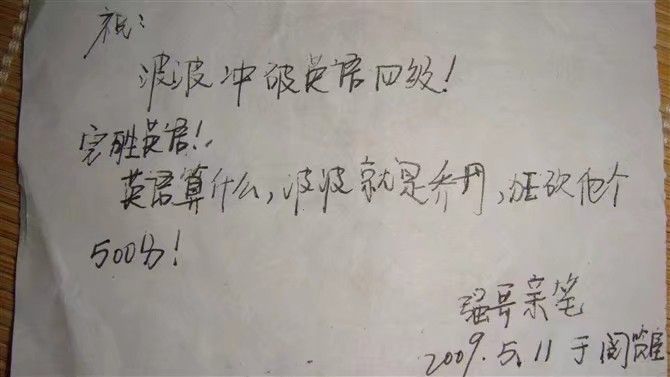 祝:
波波冲破英语四级!
完胜英语!
英语算什么,波波就是乔丹,狂砍他个
500分!
强哥亲笔
2009.5.11于